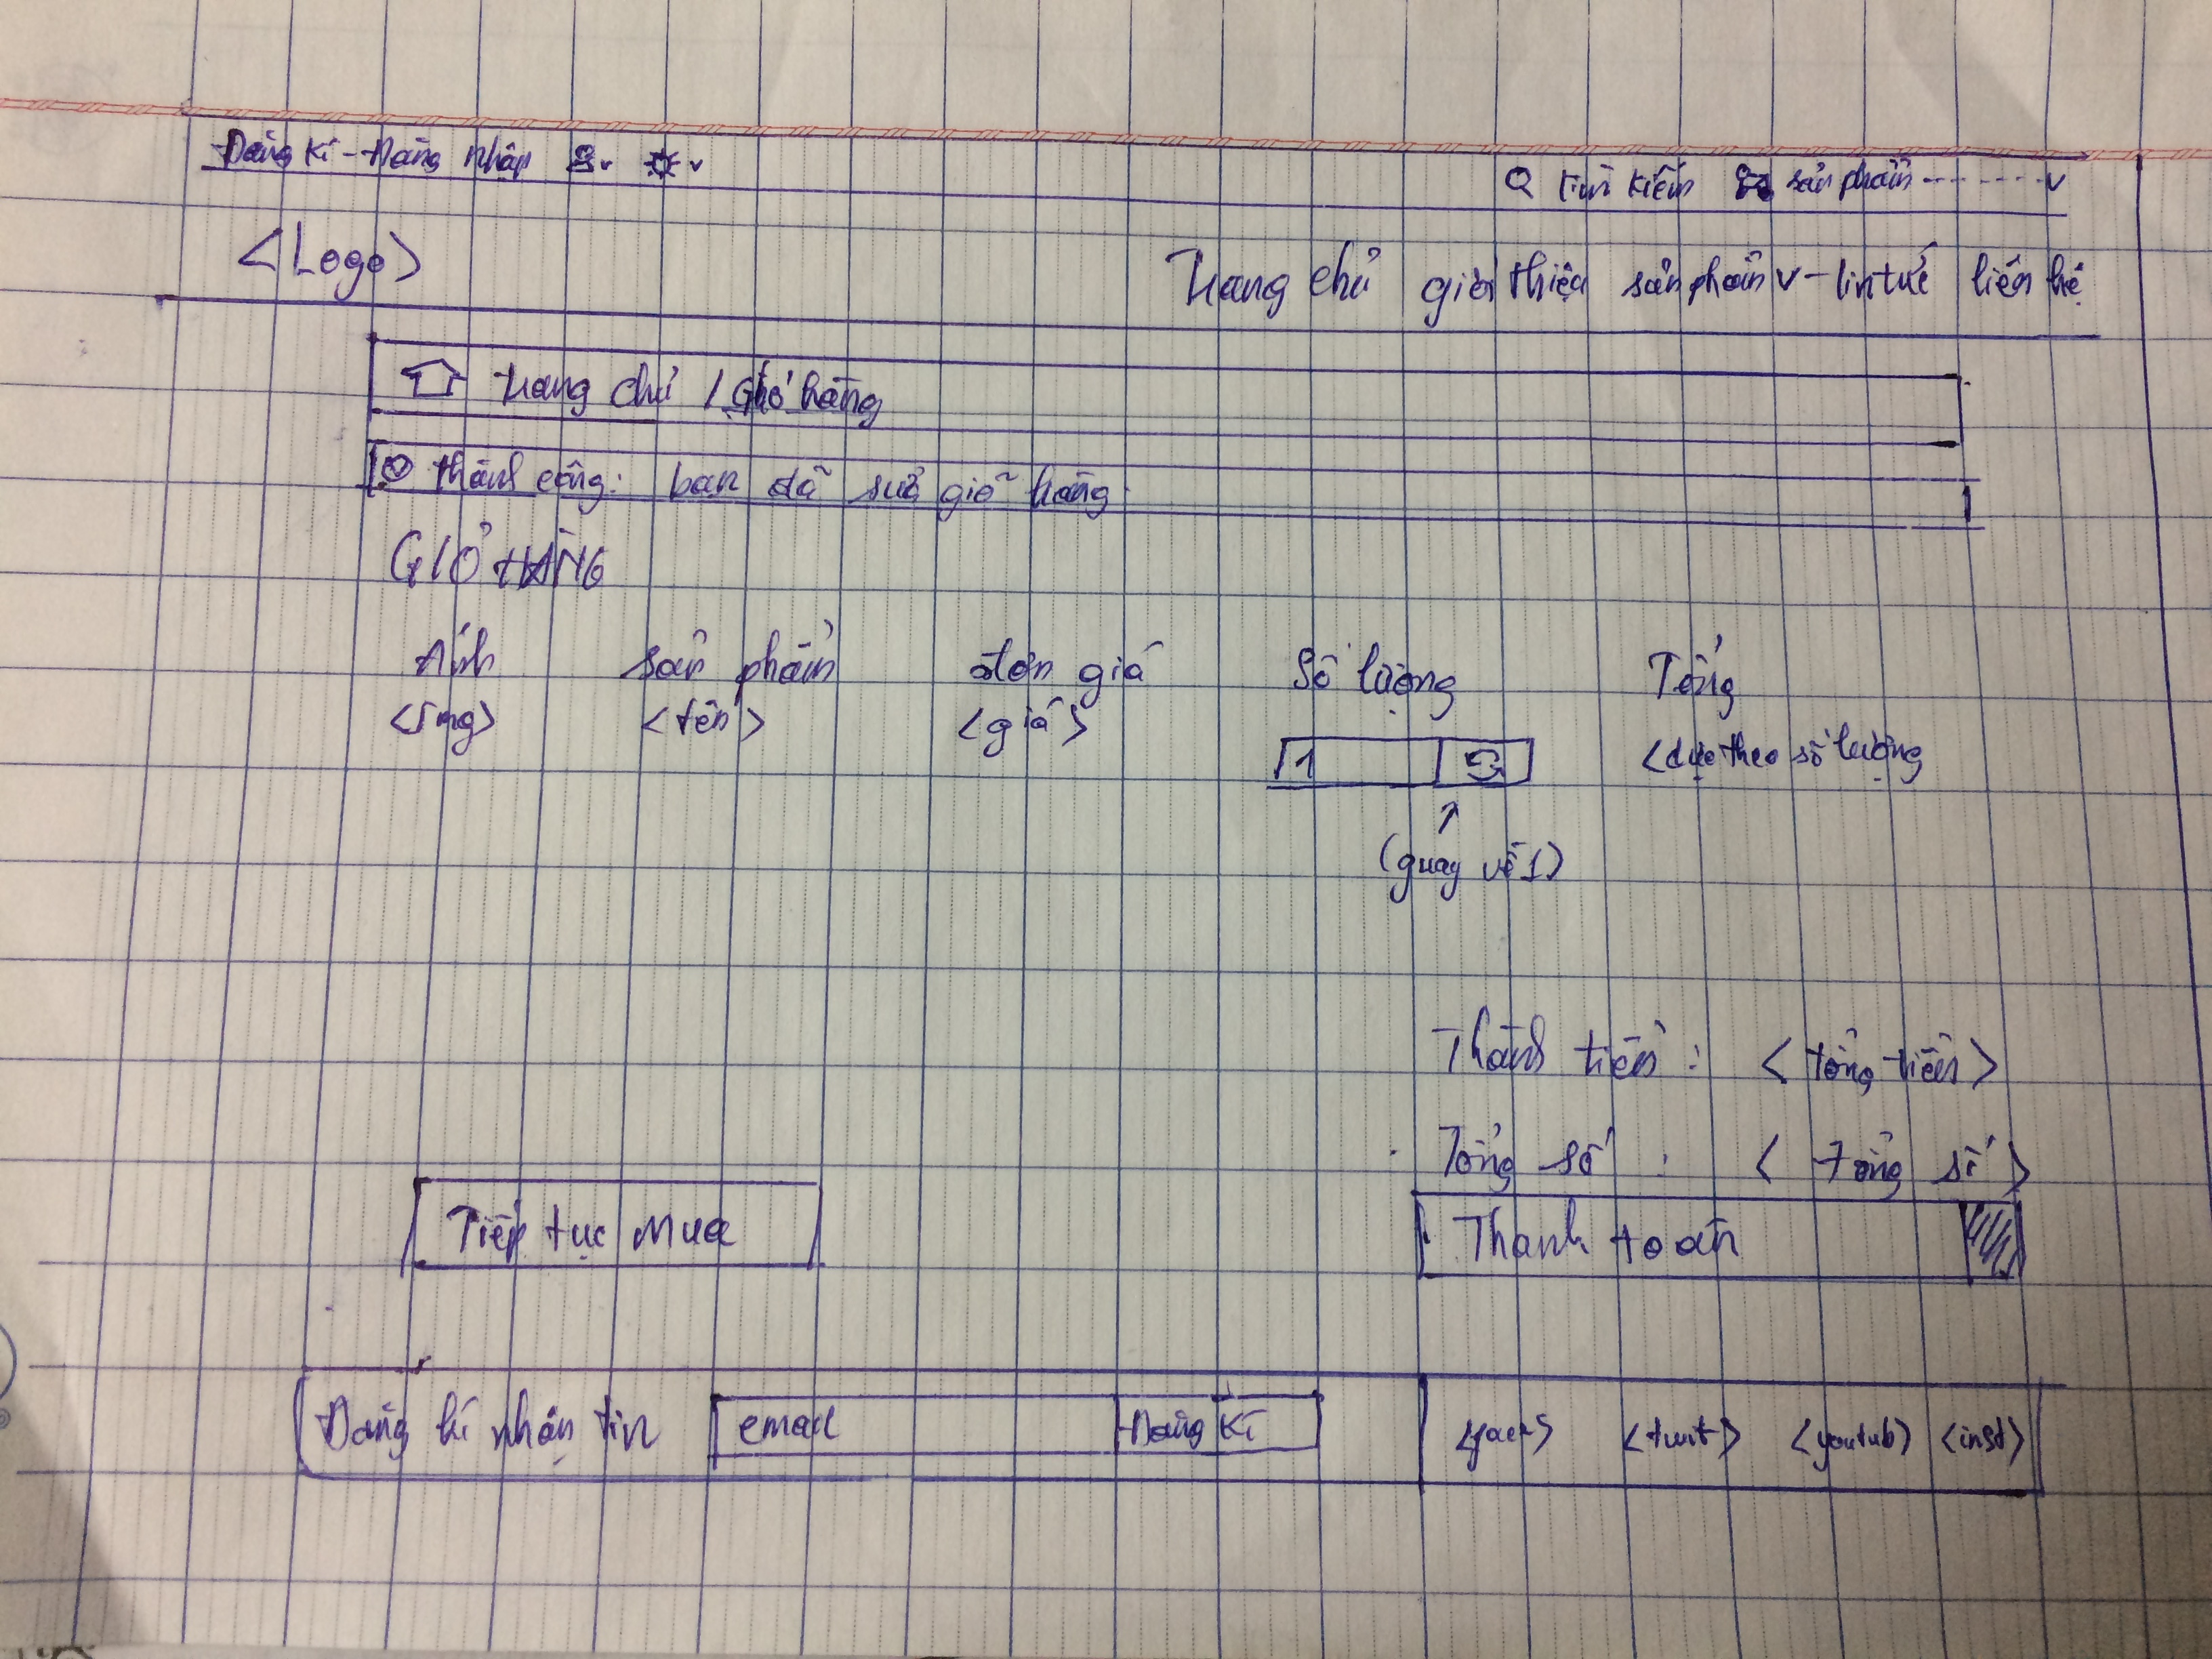 Đăng kí - Đăng nhập
tìm kiếm sản phẩm -------- v
<Logo>
Trang chủ giới thiệu sản phẩm v - tin tức liên hệ
trang chủ / Giỏ hàng
thành công: bạn đã sửa giỏ hàng
GIỎ HÀNG
Ảnh sản phẩm đơn giá Số lượng Tổng
<Img> <tên> <giá>
1 <dựa theo số lượng
(quay về 1)
Thành tiền : <tổng tiền>
Tổng số : < tổng số >
Tiếp tục Mua
Thanh toán
Đăng kí nhận tin email Đăng Kí <twit> <youtub> <inst>